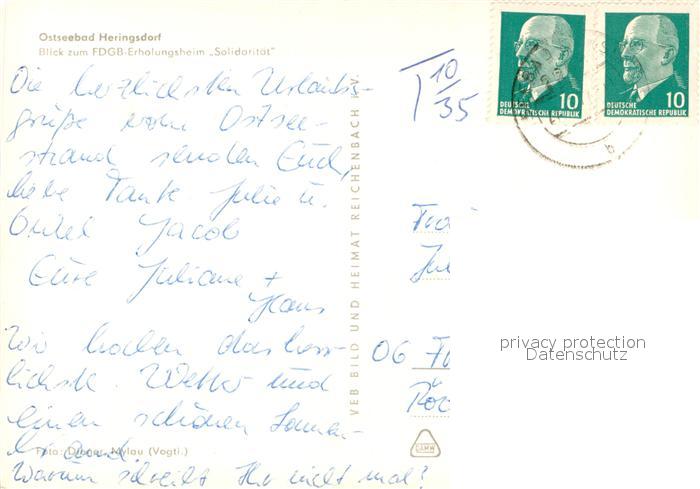 Ostseebad Heringsdorf
Blick zum FDGB-Erholungsheim „Solidarität"
Die herzlichsten Urlaubs-
grüße vom Ostsee-
strand senden Euch,
liebe Tante Julie u.
Onkel Jacob
Eure Juliane +
Hans
Wir haben das herr-
lichste Wetter und
einen schönen Sonnen-
brand.
Foto: Mylau (Vogtl.)
Warum schreibt Ihr nicht mal?
VEB BILD UND HEIMAT REICHENBACH I. V.
T 10/35
DEUTSCHE
DEMOKRATISCHE REPUBLIK
10
DEUTSCHE
DEMOKRATISCHE REPUBLIK
10
06
privacy protection
Datenschutz